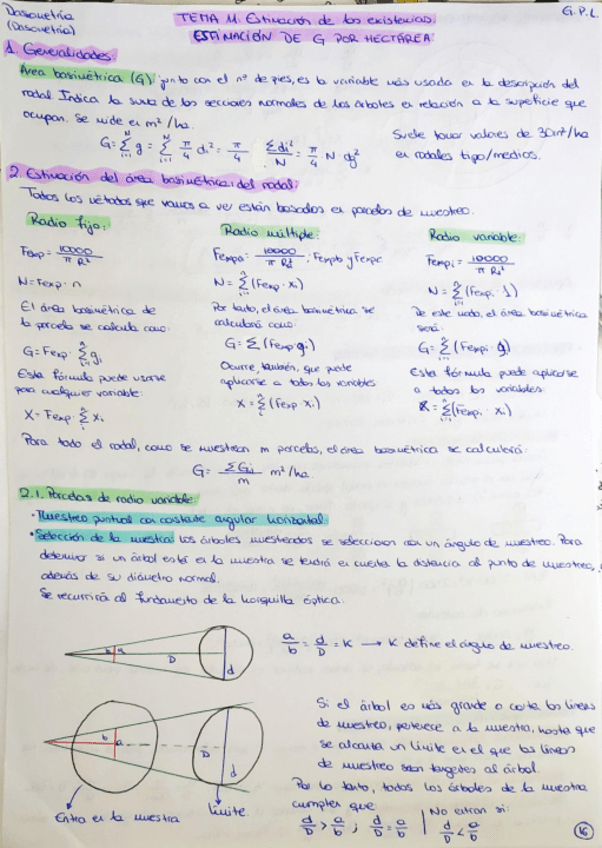 Dasometría
(Dasometría)
G.P.L.
TEMA 11: Estimación de las existencias:
ESTIMACIÓN DE G POR HECTÁREA:
1. Generalidades:
Área basimétrica (G) junto con el nº de pies, es la variable más usada en la descripción del
rodal. Indica la suma de las secciones normales de los árboles en relación a la superficie que
ocupan. Se mide en m²/ha.
G = Σ g = Σ π/4 di² = π/4 · Σdi²/N = π/4 · N · dg²
Suele tomar valores de 30m²/ha
en rodales tipo/medios.
2. Estimación del área basimétrica del rodal:
Todos los métodos que vamos a ver están basados en parcelas de muestreo.
Radio fijo:
Fexp = 10000 / π R²
N = Fexp · n
El área basimétrica de
la parcela se calcula como:
G = Fexp · Σ gi
Esta fórmula puede usarse
para cualquier variable:
X = Fexp · Σ xi
Radio múltiple:
Fexpa = 10000 / π Ra² ; Fexpb y Fexpc
N = Σ (Fexp · xi)
Por tanto, el área basimétrica se
calculará como:
G = Σ (Fexp gi)
Ocurre, también, que puede
aplicarse a todas las variables
X = Σ (Fexp xi)
Radio variable:
Fexpi = 10000 / π Ri²
N = Σ (Fexpi · 1)
De este modo, el área basimétrica
será:
G = Σ (Fexpi · g)
Esta fórmula puede aplicarse
a todas las variables:
X = Σ (Fexpi · xi)
Para todo el rodal, como se muestrean m parcelas, el área basimétrica se calculará:
G = ΣGi / m m²/ha.
2.1. Parcelas de radio variable:
· Muestreo puntual con constante angular horizontal
· Selección de la muestra: los árboles muestreados se seleccionan con un ángulo de muestreo. Para
determinar si un árbol está en la muestra se tendrá en cuenta la distancia al punto de muestreo,
además de su diámetro normal.
Se recurrirá al fundamento de la horquilla óptica:
b a D d
a/b = d/D = K → K define el ángulo de muestreo.
b a D d
Entra en la muestra
límite.
Si el árbol es más grande o corta las líneas
de muestreo, pertenece a la muestra, hasta que
se alcanza un límite en el que las líneas
de muestreo son tangentes al árbol.
Por lo tanto, todos los árboles de la muestra
cumplen que:
d/D > a/b ; d/D = a/b
No entran si:
d/D < a/b
16